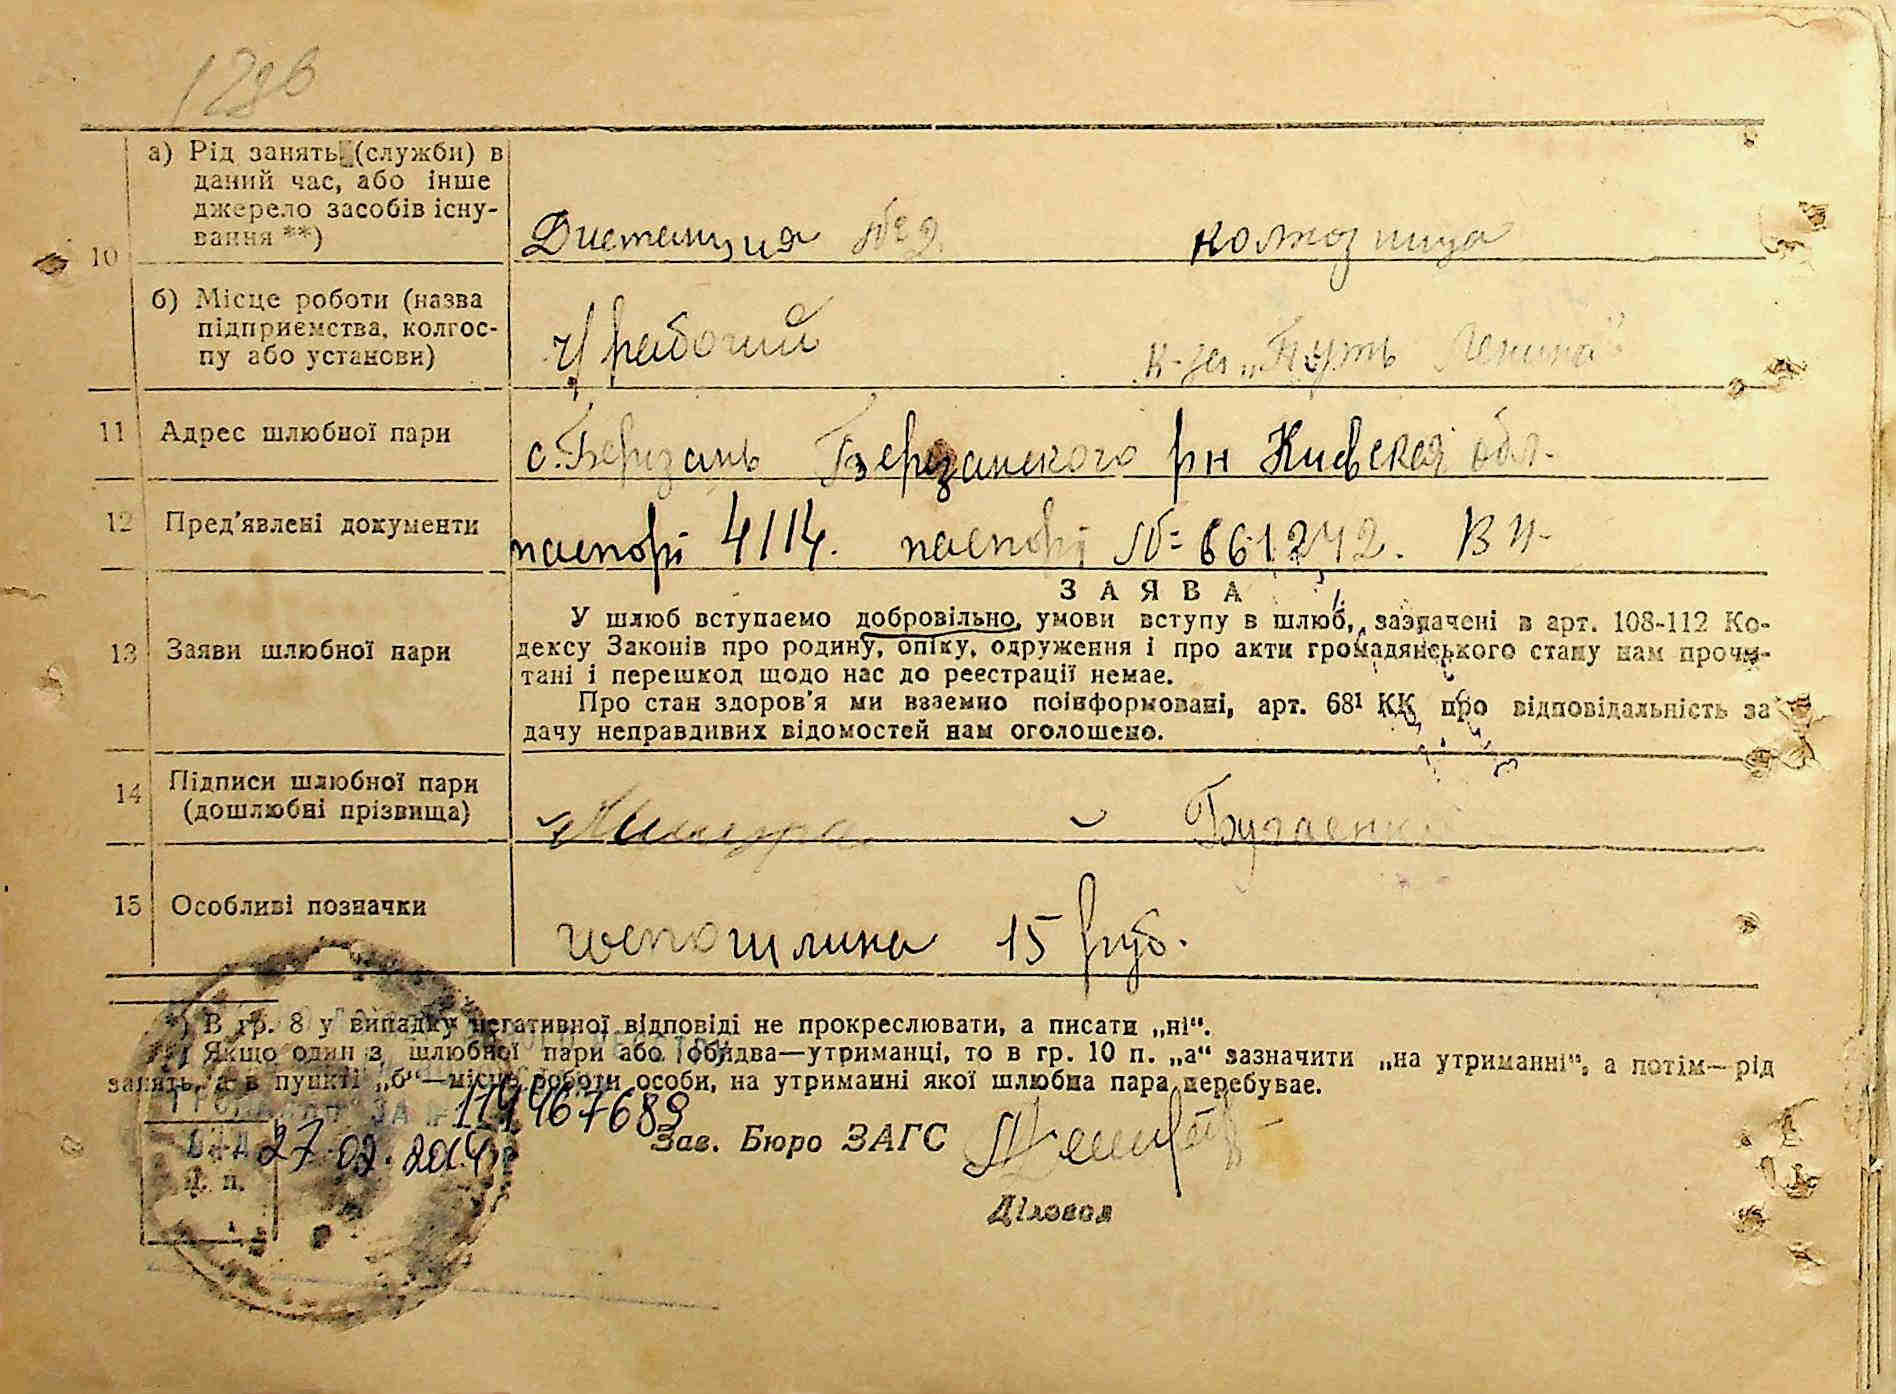 а) Рід занять (служби) в
даний час, або інше
джерело засобів існу-
вання **)
10
Дистанция № 9. колхозница
б) Місце роботи (назва
підприємства, колгос-
пу або установи)
ч/рабочий к-за „Путь Ленина"
11 Адрес шлюбної пари
с. Березань Березанского рн Киевской обл.
12 Пред'явлені документи
паспорт 4114. паспорт № 661242.
13 Заяви шлюбної пари
ЗАЯВА
У шлюб вступаємо добровільно, умови вступу в шлюб, зазначені в арт. 108-112 Ко-
дексу Законів про родину, опіку, одруження і про акти громадянського стану нам прочи-
тані і перешкод щодо нас до реєстрації немає.
Про стан здоров'я ми взаємно поінформовані, арт. 68¹ КК про відповідальність за
дачу неправдивих відомостей нам оголошено.
14 Підписи шлюбної пари
(дошлюбні прізвища)
Бугаенко
15 Особливі позначки
госпошлина 15 руб.
*) В гр. 8 у випадку негативної відповіді не прокреслювати, а писати „ні“.
Якщо один з шлюбної пари або обидва—утриманці, то в гр. 10 п. „а“ зазначити „на утриманні“, а потім—рід
занять, а в пункті „б“—місце роботи особи, на утриманні якої шлюбна пара перебуває.
Зав. Бюро ЗАГС
Діловод
27.02.2014
м. п.